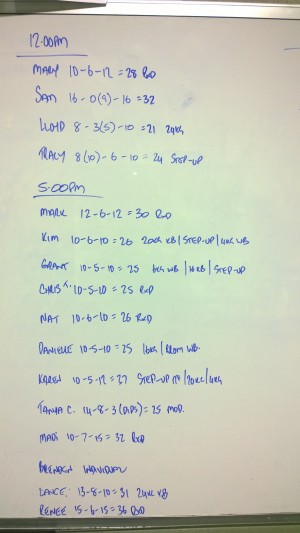 12:00PM
MARY 10-6-12 = 28 RxD
SAM 16-0(9)-16 = 32
LLOYD 8-3(5)-10 = 21 24KG
TRACY 8(10)-6-10 = 24 STEP-UP
5:00PM
MARK 12-6-12 = 30 RxD
KIM 10-6-10 = 26 20KG KB | STEP-UP | 4KG WB
GRANT 10-5-10 = 25 6KG WB | 16KB | STEP-UP
CHRIS T. 10-5-10 = 25 RxD
NAT 10-6-10 = 26 RxD
DANIELLE 5-10 = 25 16KG | WB.
KAREN 10-5-12 = 27 STEP-UP | 20KG | 4KG
TANYA C. 14-8-3(DIPS) = 25 MOD.
MADI 10-7-15 = 32 RxD
BRENDON INDIVIDUAL
LANCE. 13-8-10 = 31 24KG KB
RENEE 15-6-15 = 36 RxD